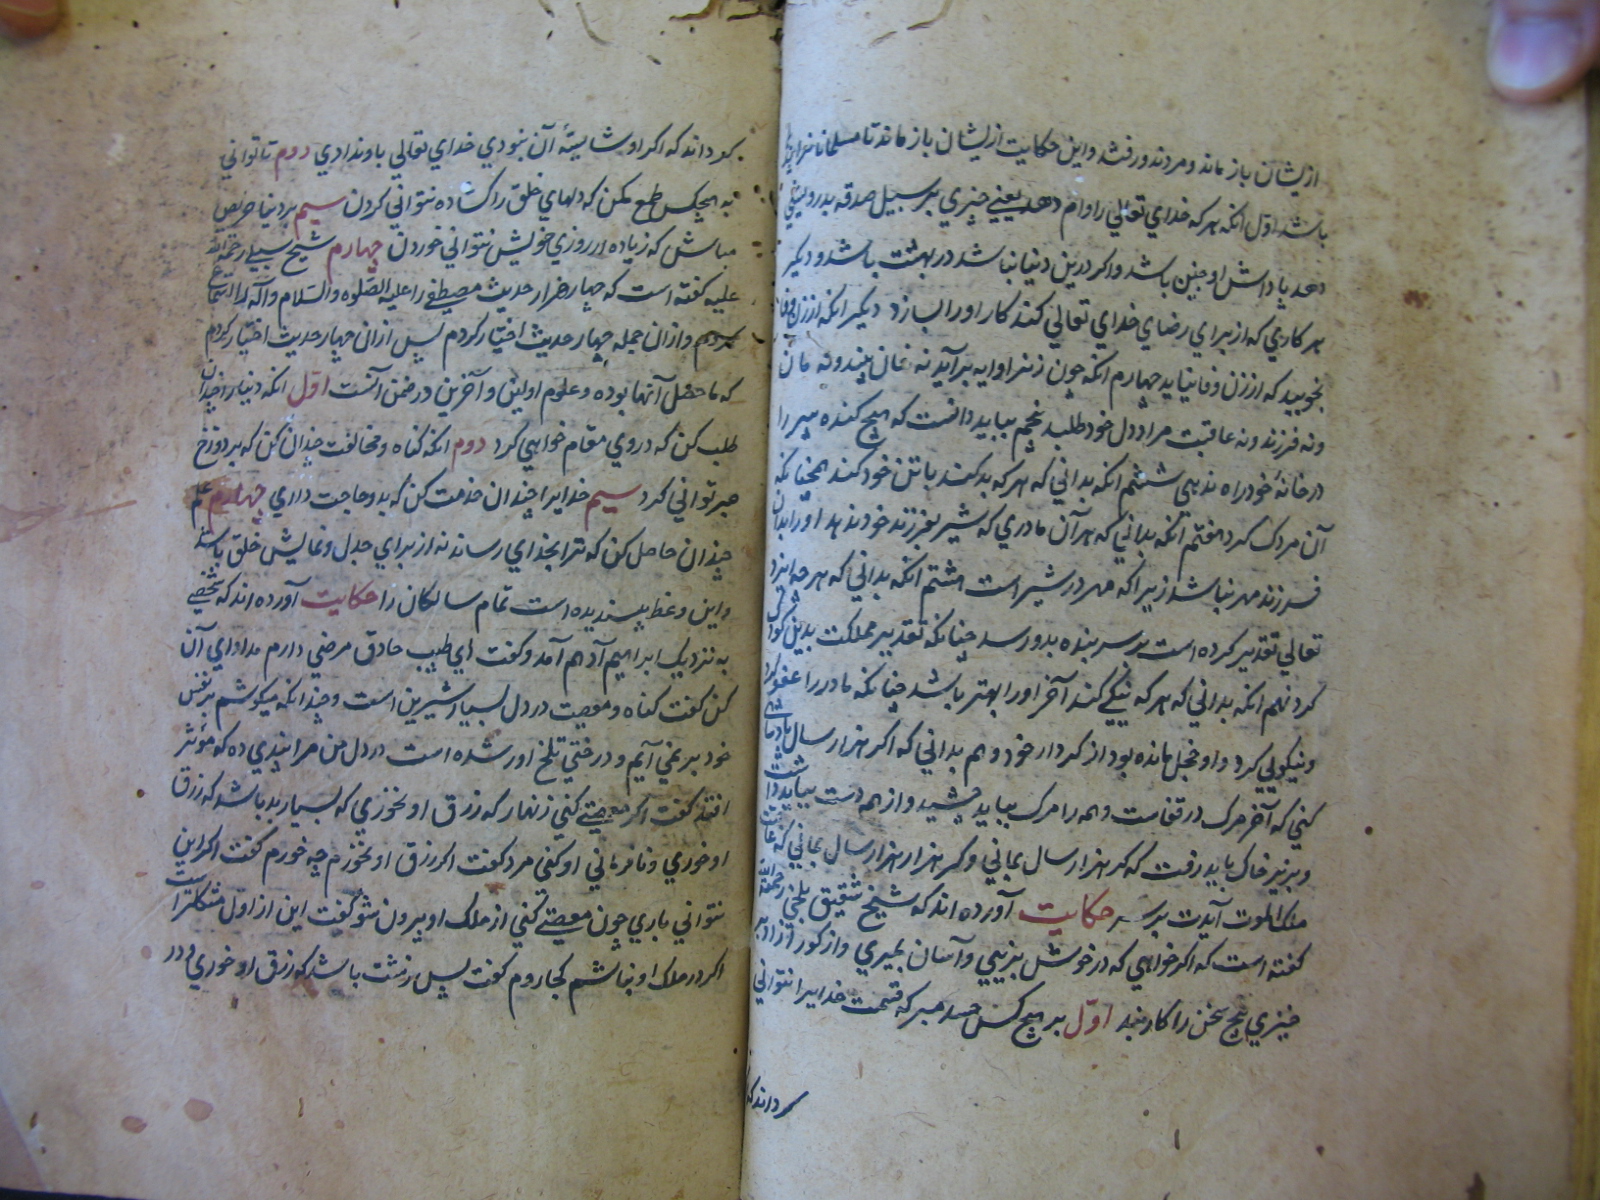 ازیشان باز ماند و مردند و رفتند و این حکایت ازیشان باز ماند تا مسلمانانرا
باشد اول انکه هر که خدای تعالی را وام دهد یعنی چیزی بر سبیل صدقه بدرویشی
دهد پاداش او چنین باشد و اکر درین دنیا نباشد در بهشت باشد و دیکر
هر کاری که از برای رضای خدای تعالی کند کار او را بسازد دیکر انکه از زن وفا
نجویید که از زن وفا نیاید چهارم انکه چون زنرا وایه برآید نه خان بیند و نه مان
و نه فرزند و نه عاقبت مراد دل خود طلبد پنجم بباید دانست که هیچ کنده پیر را
در خانهٔ خود راه ندهی ششم انکه بدانی که هر که بد کند با تن خود کند همچنانکه
آن مردک کرد هفتم انکه بدانی که هر آن مادری که شیر بفرزند خود ندهد او را بدان
فرزند مهر نباشد زیرا که مهر در شیر است هشتم انکه بدانی که هر چه ایزد
تعالی تقدیر کرده است بر سر بنده بدو رسد چنانکه تقدیر مملکت بدین کودک
کرد نهم انکه بدانی که هر که نیکی کند آخر او را بهتر باشد چنانکه مادر را عفو کرد
و نیکویی کرد و او خجل مانده بود از کردار خود دهم بدانی که اکر هزار سال پادشاهی
کنی که آخر مرک در قفاست و همه را مرک بباید چشید و از همه دست بباید داشت
و بزیر خاک بباید رفت که کر هزار سال بمانی و کر هزار هزار سال بمانی که عاقبت
ملک الموت آیدت بر سر حکایت آورده اند که شیخ شقیق بلخی رحمة الله
کفته است که اکر خواهی که در خوش بزییی و آسان بمیری و از کور آزاد بر
خیزی پنج سخن را کار بند اوّل بر هیچ کس حسد مبر که قسمت خدایرا نتوانی
کرداند که
کرداند که اکر او شایستهٔ آن نبودی خدای تعالی باو ندادی دوم تا توانی
به هیچکس طمع مکن که دلهای خلق را کشاده نتوانی کردن سیم بر دنیا حریص
مباش که زیاده از روزی خویش نتوانی خوردن چهارم شیخ شبلی رحمة الله
علیه کفته است که چهار هزار حدیث مصطفی را علیه الصّلوة و السّلام و آله
کردم و از ان جمله چهار حدیث اختیار کردم پس از ان چهار حدیث اختیار کردم
که ماحصل آنها بوده و علوم اولین و آخرین در ضمن آنست اوّل انکه دنیا را چندان
طلب کن که در وی مقام خواهی کرد دوم انکه کناه و مخالفت چندان کن که بر دوزخ
صبر توانی کرد سیم خدایرا چندان خدمت کن که بدو حاجت داری چهارم علم
چندان حاصل کن که ترا بخدای رساند نه از برای جدل و نمایش خلق باشد
و این وعظ پسندیده است تمام سالکان را حکایت آورده اند که شخصی
به نزدیک ابراهیم آدهم آمد و کفت ای طبیب حاذق مرضی دارم مداوای آن
کن کفت کناه و معصیت در دل بسیار شیرین است و چندانکه میکوشم بر نفس
خود بر نمی آیم و درختی تلخ آور شده است در دل من مرا پندی ده که مؤثر
افتد کفت اکر معصیتی کنی زنهار که رزق او نخوری که بسیار بد باشد که رزق
او خوری و نافرمانی او کنی مرد کفت اکر رزق او نخورم چه خورم کفت اکر این
نتوانی باری چون معصیتی کنی از ملک او بیرون شو کفت این از اول مشکلتر است
اکر در ملک او نباشم کجا روم کفت پس زشت باشد که رزق او خوری و در